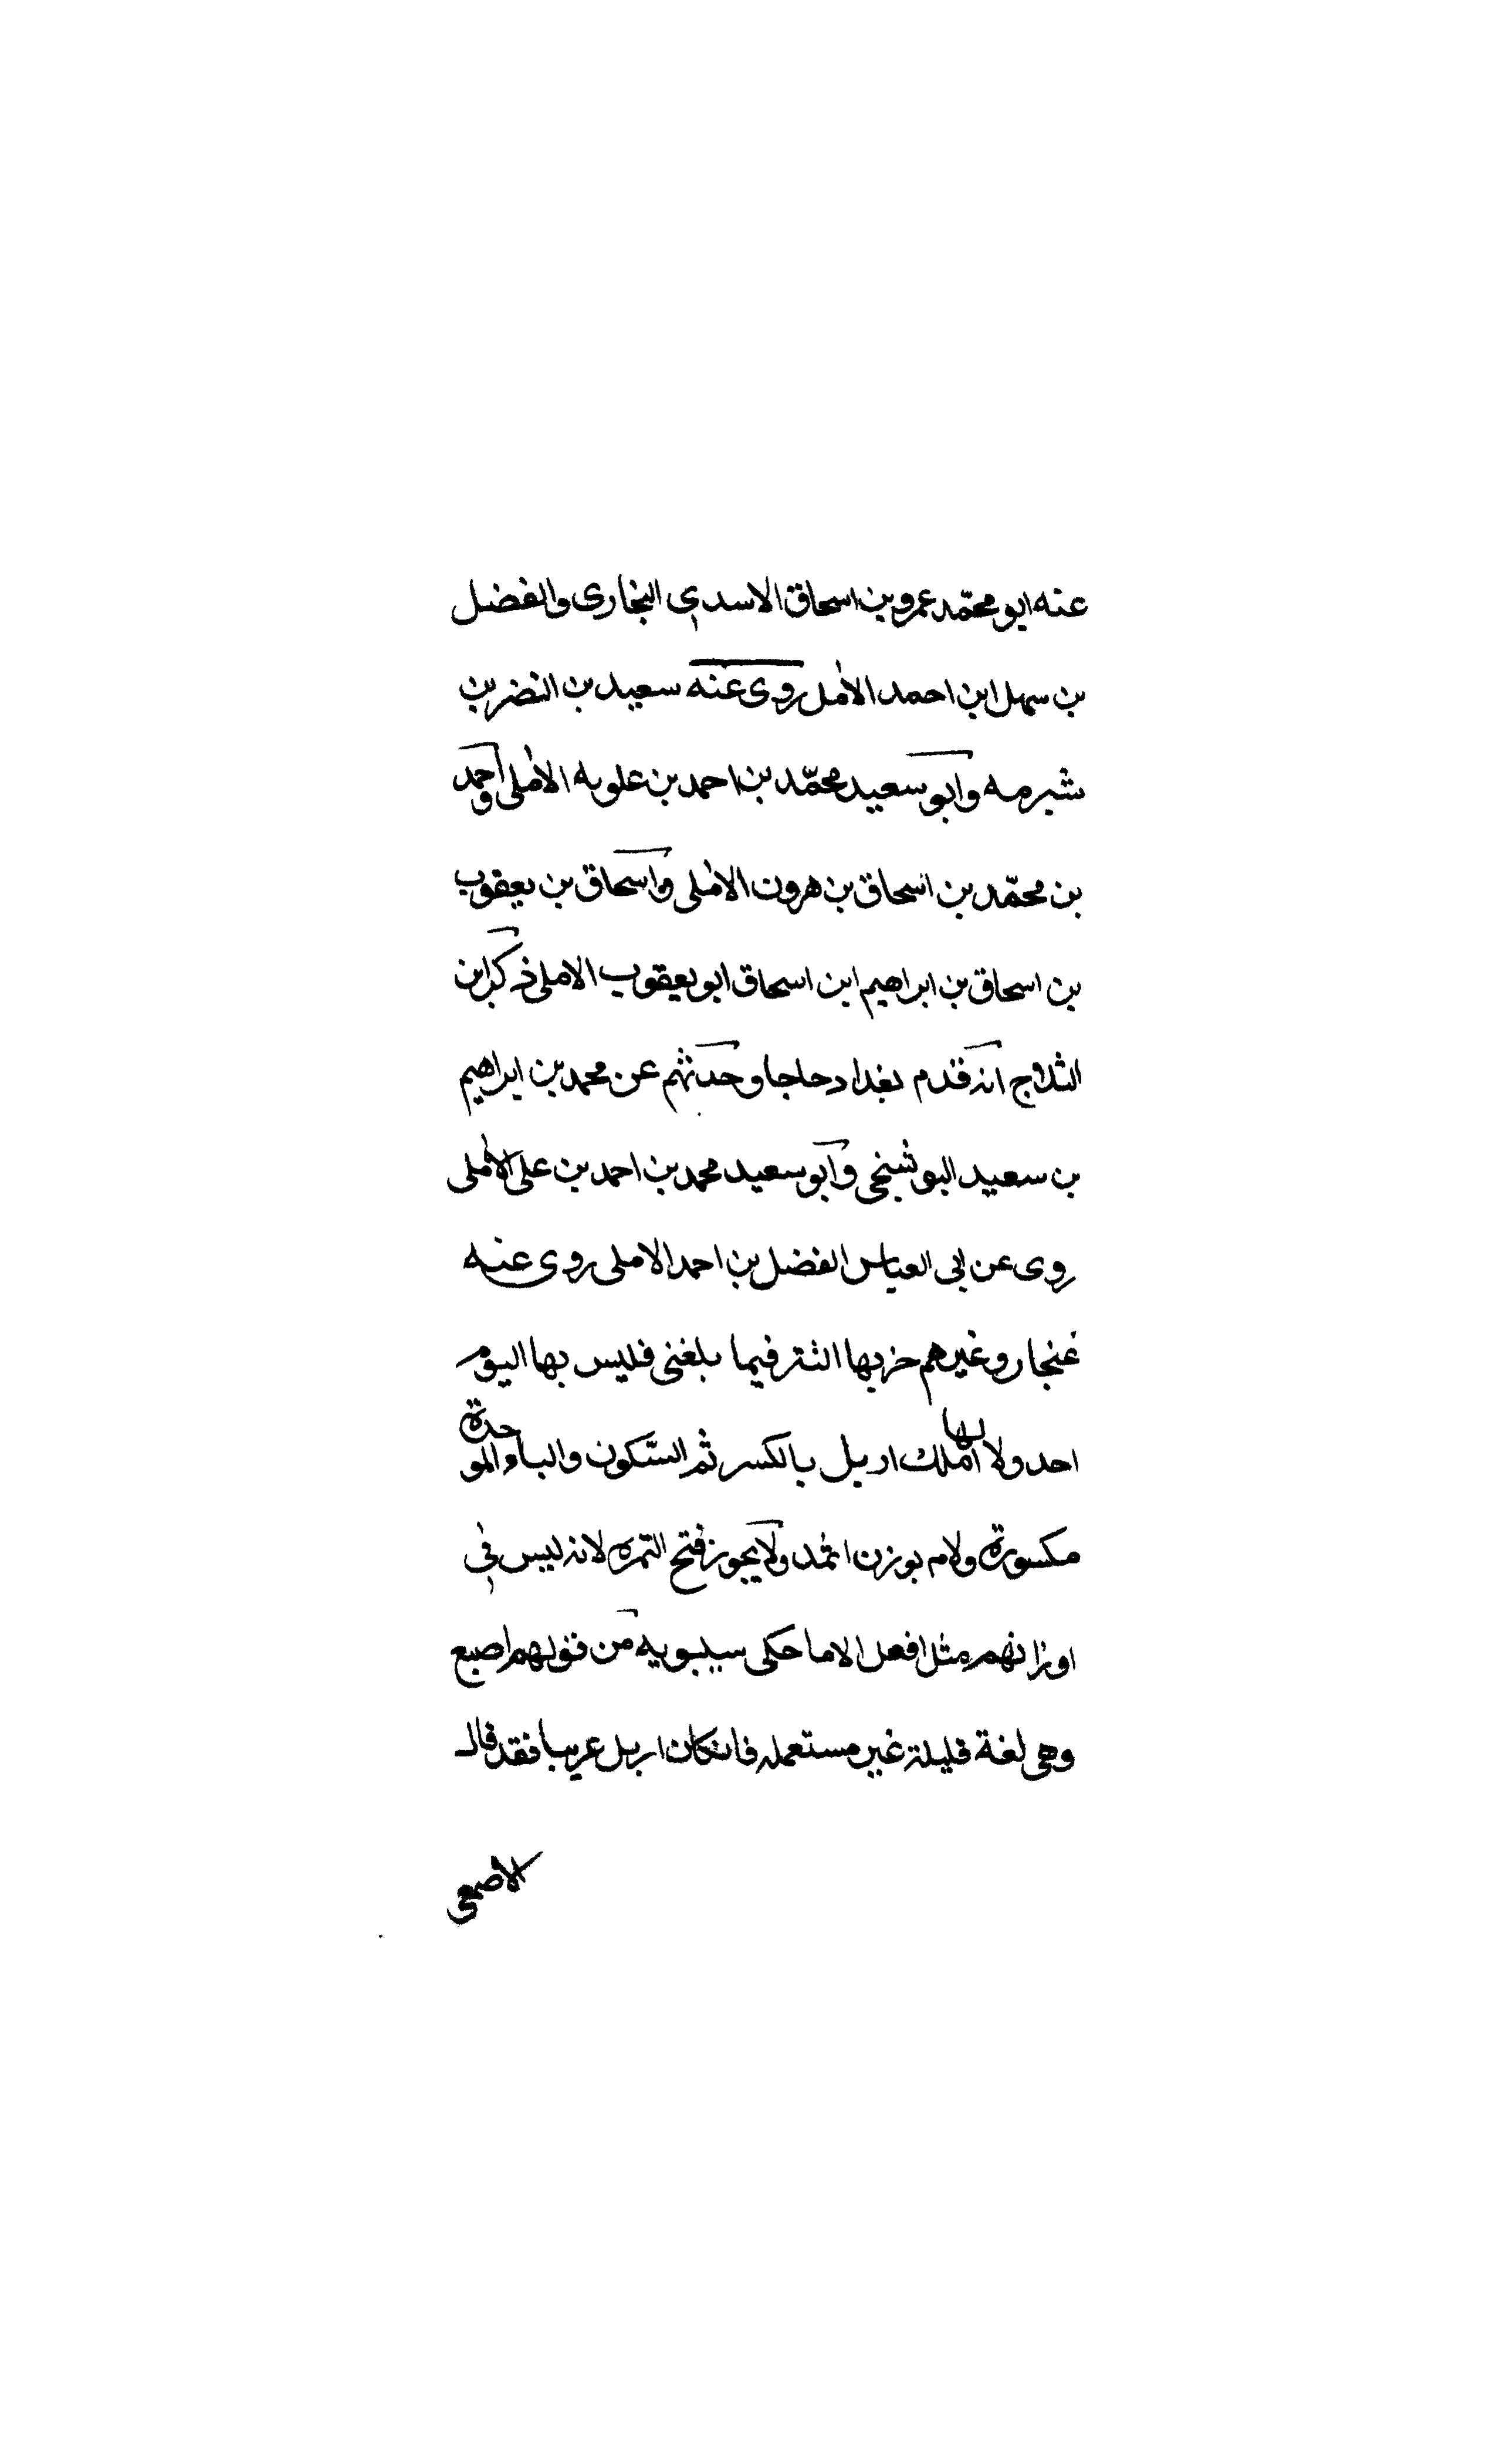 عنه ابو محمّد عمرو بن اسحاق الاسدي البخاري والفضل
بن سهل ابن احمد الاملي روى عنه سعيد بن النضر بن
شبرمه وابو سعيد محمّد بن احمد بن علويه الاملي واحمد
بن محمّد بن اسحاق بن هرون الاملي واسحاق بن يعقوب
بن اسحاق بن ابراهيم ابن اسحاق ابو يعقوب الاملي ذكر ابن
الثلاج انه قدم بغداد حاجا وحدثهم عن محمد بن ابراهيم
بن سعيد البوشنجي وابو سعيد محمد بن احمد بن علي الاملي
روى عن ابي العباس الفضل بن احمد الاملي روى عنه
غنجار وغيرهم خربها التتر فيما بلغني فليس بها اليوم
احد ولا لها ملك اربل بالكسر ثم السّكون والباء الموحدة
مكسورة ولام بوزن اثمد ولا يجوز فتح الهمزه لانه ليس في
اوزانهم مثل افعل الا ما حكى سيبويه من قولهم اصبع
وهي لغة قليلة غير مستعمله فان كان اربل عربيا فقد قال
الاصمعي